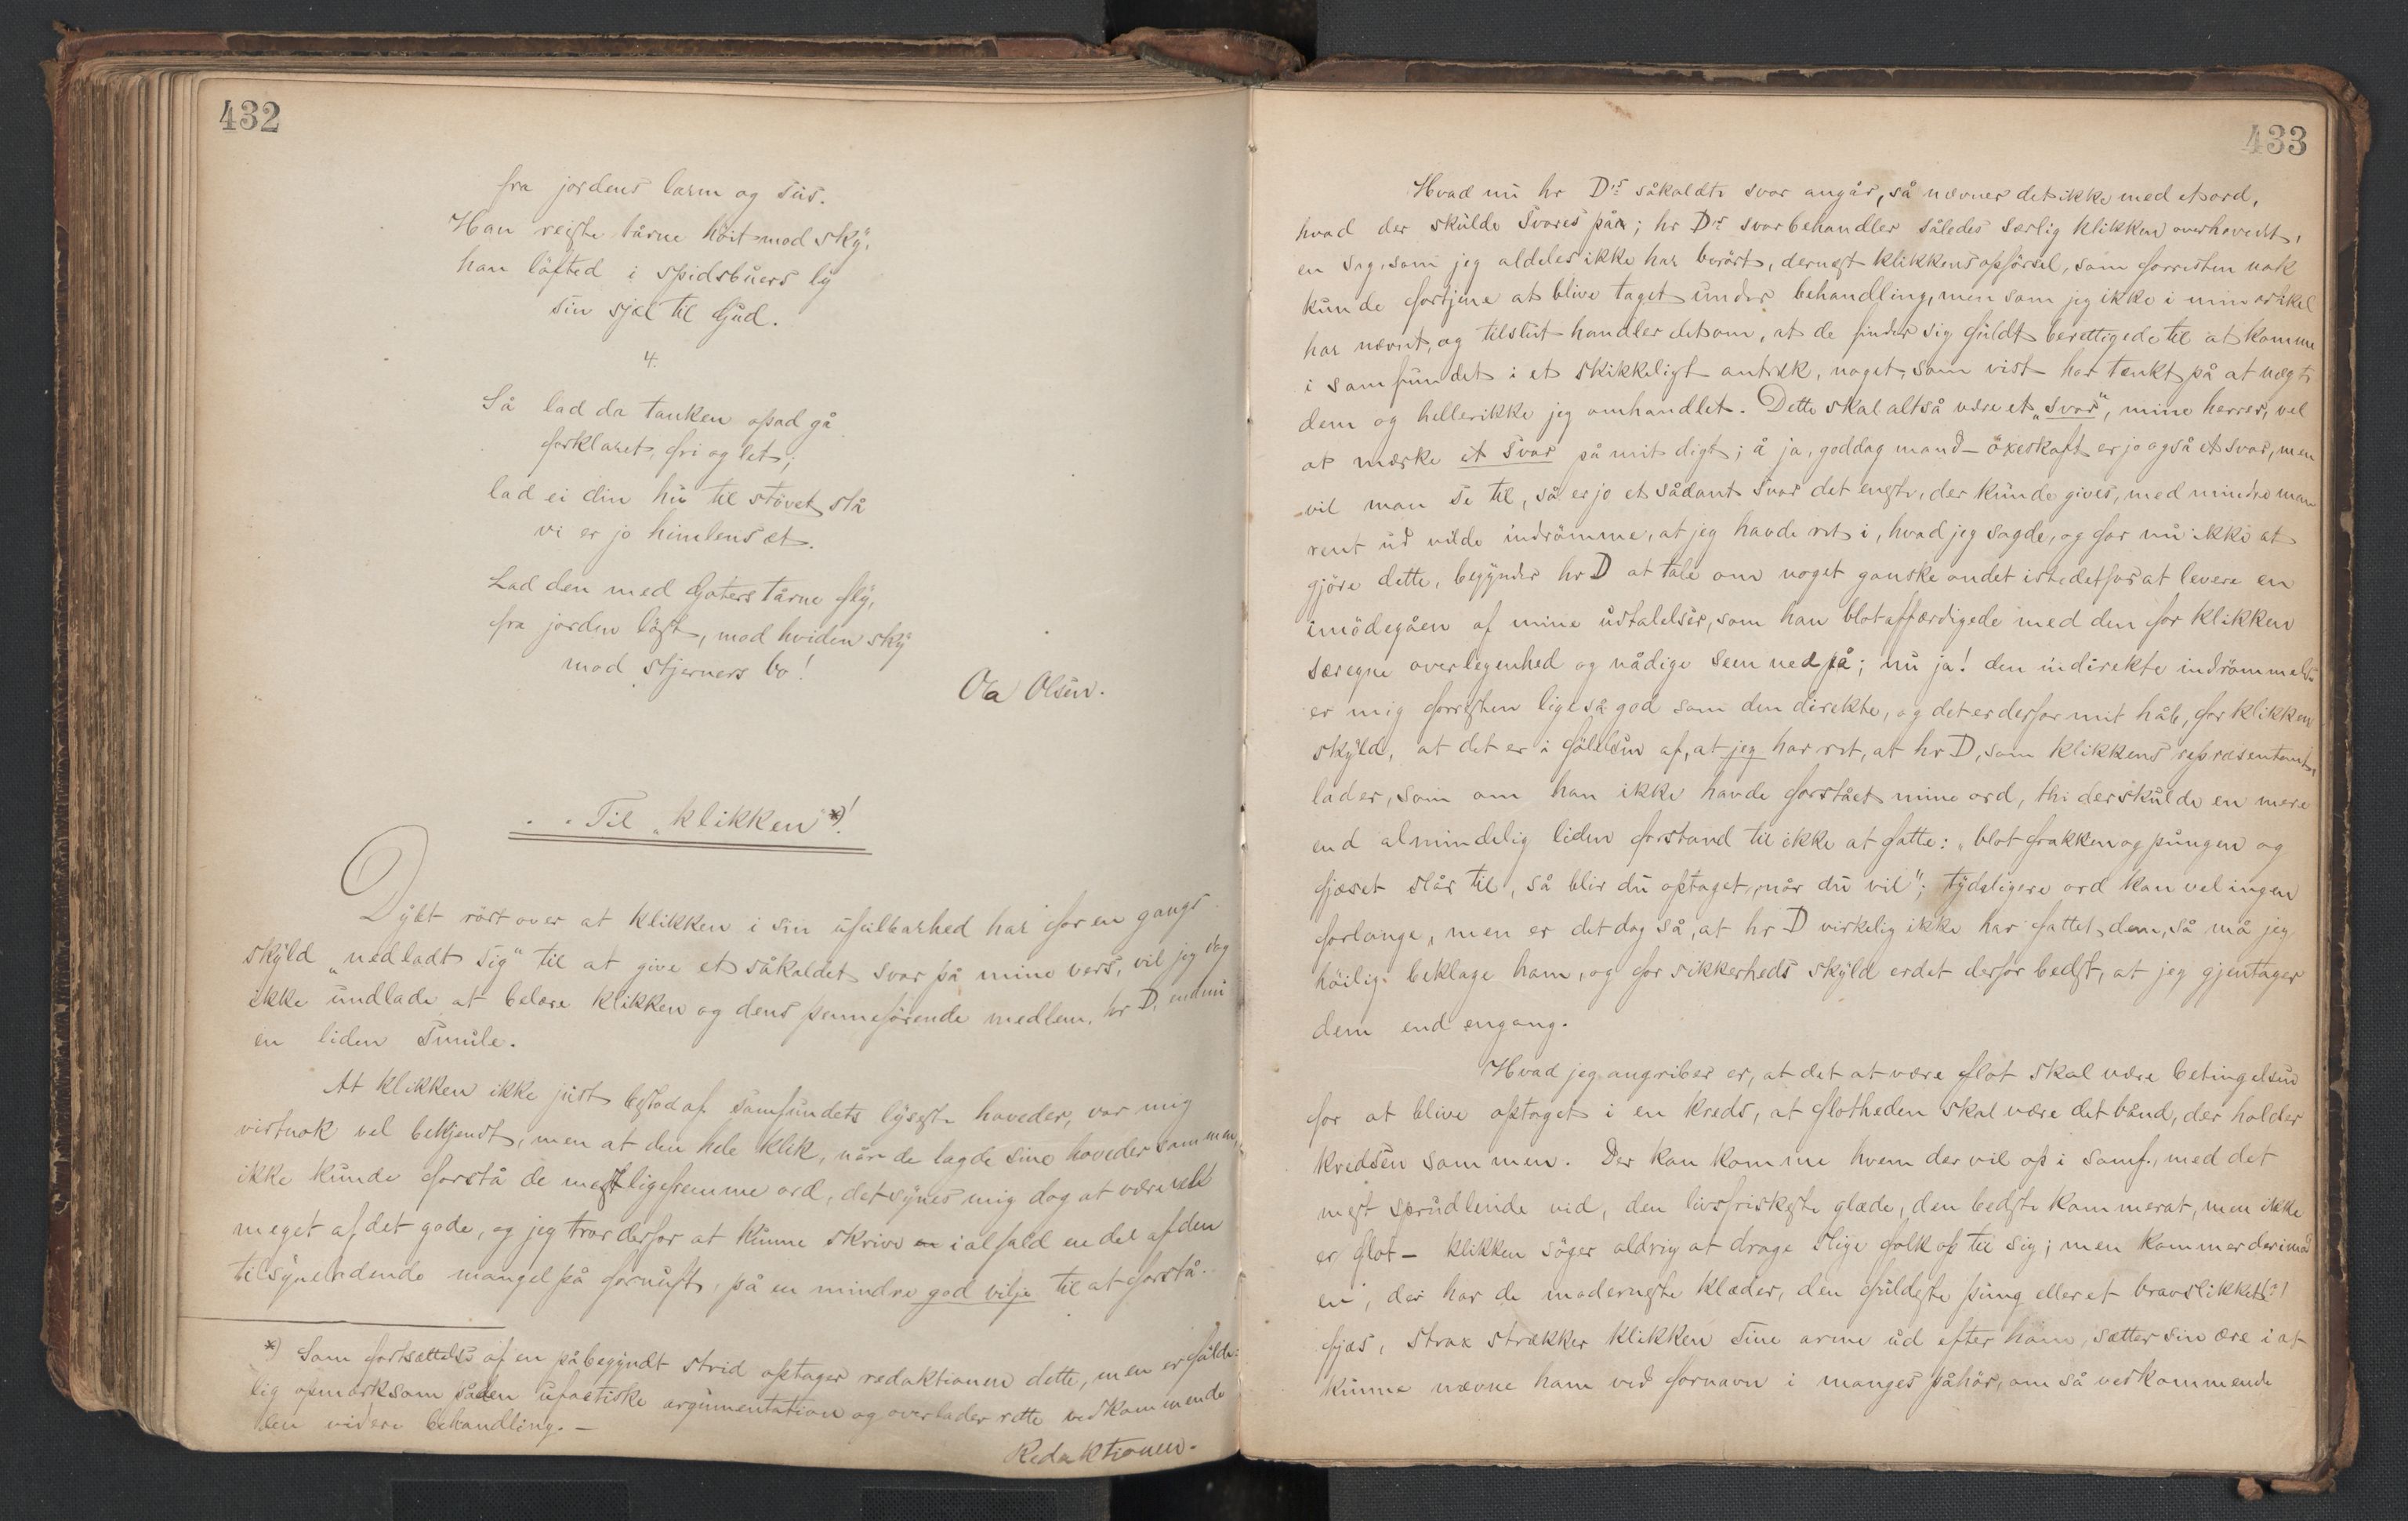 432
fra jordens larm og sus.
Han reiste tårne höit mod sky,
han löfted i spidsbuers ly
sin sjæl til Gud.
4.
Så lad da tanken opad gå
forklaret, fri og let;
lad ei din hu til stövet stå
vi er jo himlens æt.
Lad den med Goters tårne fly,
fra jorden löst, mod hviden sky
mod stjerners bo!
Ola Olsen.
Til „klikken“*)!
Dybt rört over at klikken i sin ufeilbarhed har for en gangs
skyld „nedladt sig“ til at give et såkaldet svar på mine vers, vil jeg dog
ikke undlade at belære klikken og dens penneförende medlem, hr D. endnu
en liden smule.
At klikken ikke just bestod af samfundets lyseste hoveder, var mig
vistnok vel bekjendt, men at den hele klik, når de lagde sine hoveder sammen,
ikke kunde forstå de mest ligefremme ord, det synes mig dog at være vel
meget af det gode, og jeg tror derfor at kunne skrive en ialfald en del af den
tilsyneladende mangel på fornuft, på en mindre god vilje til at forstå.
*) Som fortsættelse af en påbegyndt strid optager redaktionen dette, men er fulde-
lig opmærksom på den ufactiske argumentation og overlader rette vedkommende
den videre behandling. —
Redaktionen.
433
Hvad nu hr D's såkaldte svar angår, så nævner det ikke med et ord,
hvad der skulde svares på; hr D's svar behandler således særlig klikken overhovedet,
en sag, som jeg aldeles ikke har berört, dernæst klikkens opförsel, som forresten nok
kunde fortjene at blive taget under behandling, men som jeg ikke i min artikel
har nævnt, og tilslut handler det om, at de finder sig fuldt berettigede til at komme
i samfundet i et skikkeligt antræk, noget, som vist har tænkt på at nægte
dem og heller ikke jeg omhandlet. Dette skal altså være et „svar“, mine herrer, vel
at mærke et svar på mit digt; å ja, goddag mand – öxeskaft er jo også et svar, men
vil man se til, så er jo et sådant svar det eneste, der kunde gives, med mindre man
rent ud vilde indrömme, at jeg havde ret i, hvad jeg sagde, og for nu ikke at
gjöre dette, begynder hr D at tale om noget ganske andet istedetfor at levere en
imödegåen af mine udtalelser, som han blot affærdigede med den for klikken
særegne overlegenhed og nådige seen ned på; nu ja! den indirekte indrömmelse
er mig forresten lige så god som den direkte, og det er derfor mit håb, for klikkens
skyld, at det er i fölelsen af, at jeg har ret, at hr D, som klikkens repræsentant,
lader, som om han ikke havde forstået mine ord, thi der skulde en mere
end almindelig liden forstand til ikke at fatte: „blot frakken og pungen og
fjæset slår til, så blir du optaget, når du vil“; tydeligere ord kan vel ingen
forlange, men er det dog så, at hr D virkelig ikke har fattet dem, så må jeg
höilig beklage ham, og for sikkerheds skyld er det derfor bedst, at jeg gjentager
dem end engang.
Hvad jeg angriber er, at det at være flot skal være betingelsen
for at blive optaget i en kreds, at flotheden skal være det bånd, der holder
kredsen sammen. Der kan komme hvem der vil op i samf., med det
mest sprudlende vid, den livsfriskeste glæde, den bedste kammerat, men ikke
er flot – klikken söger aldrig at drage slige folk op til sig; men kommer derimod
en, der har de moderneste klæder, den fuldeste pung eller et bravslikket(?!
fjæs, strax strækker klikken sine arme ud efter ham, sætter sin ære i at
kunne nævne ham ved fornavn i manges påhör, om så vedkommende